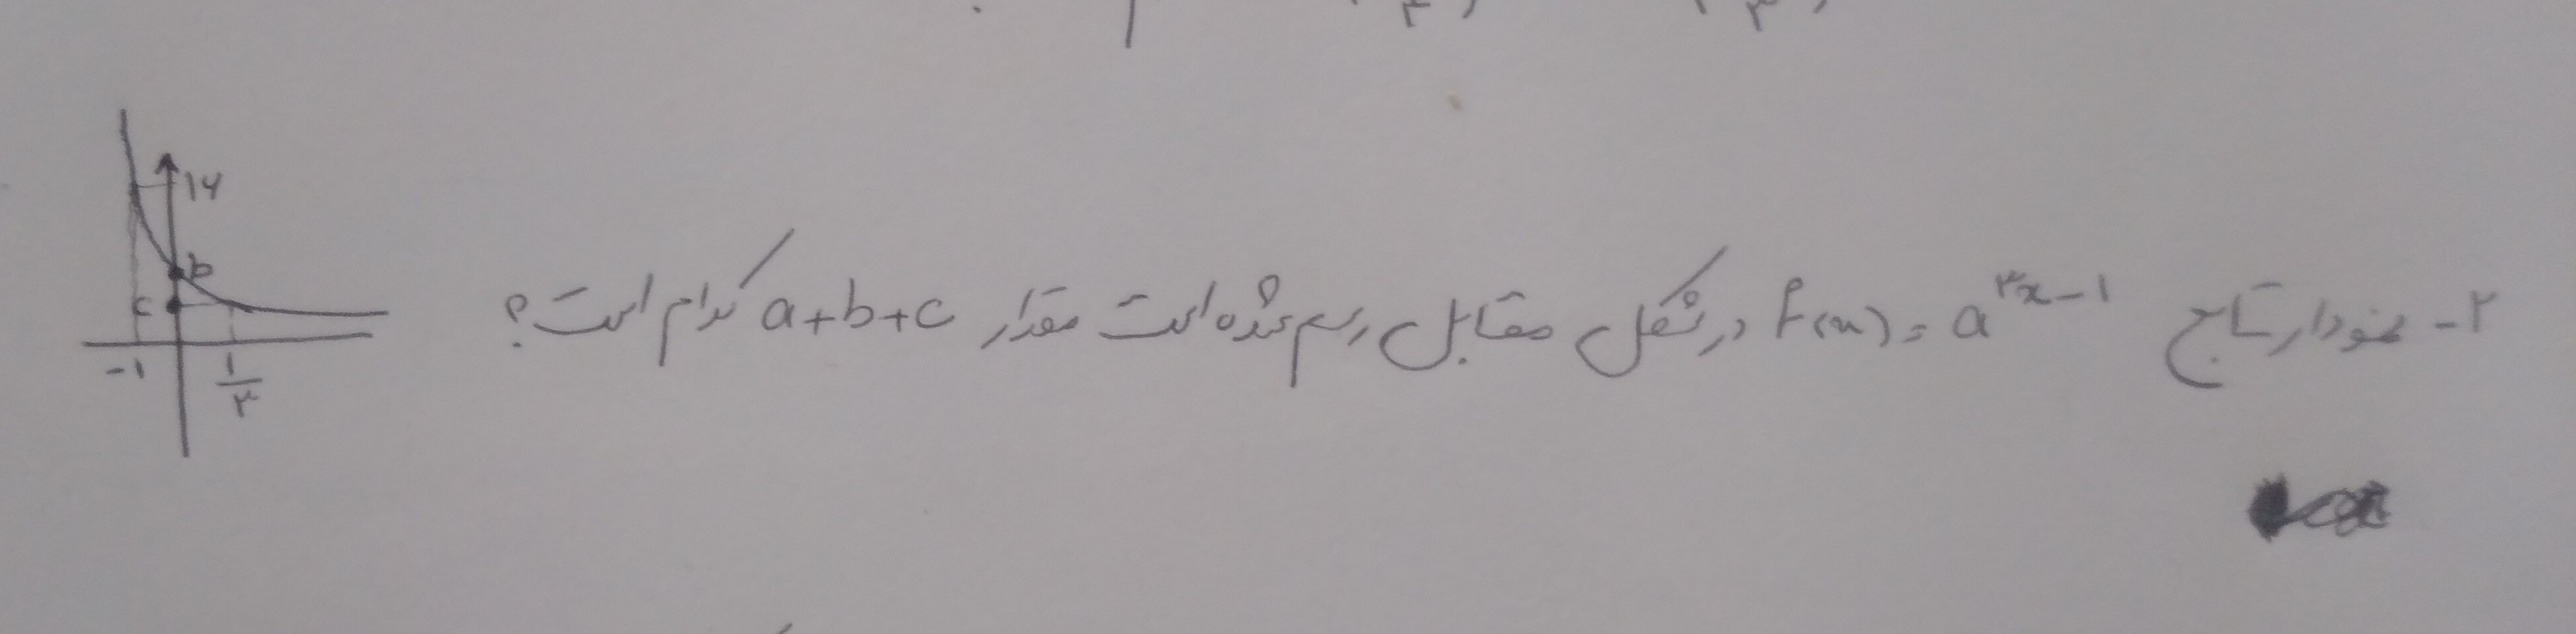 ۲- نمودار تابع f(x) = a^۳x-۱ در شکل مقابل رسم شده است مقدار a+b+c کدام است؟
۱۶
b
c
-۱
۱/۳